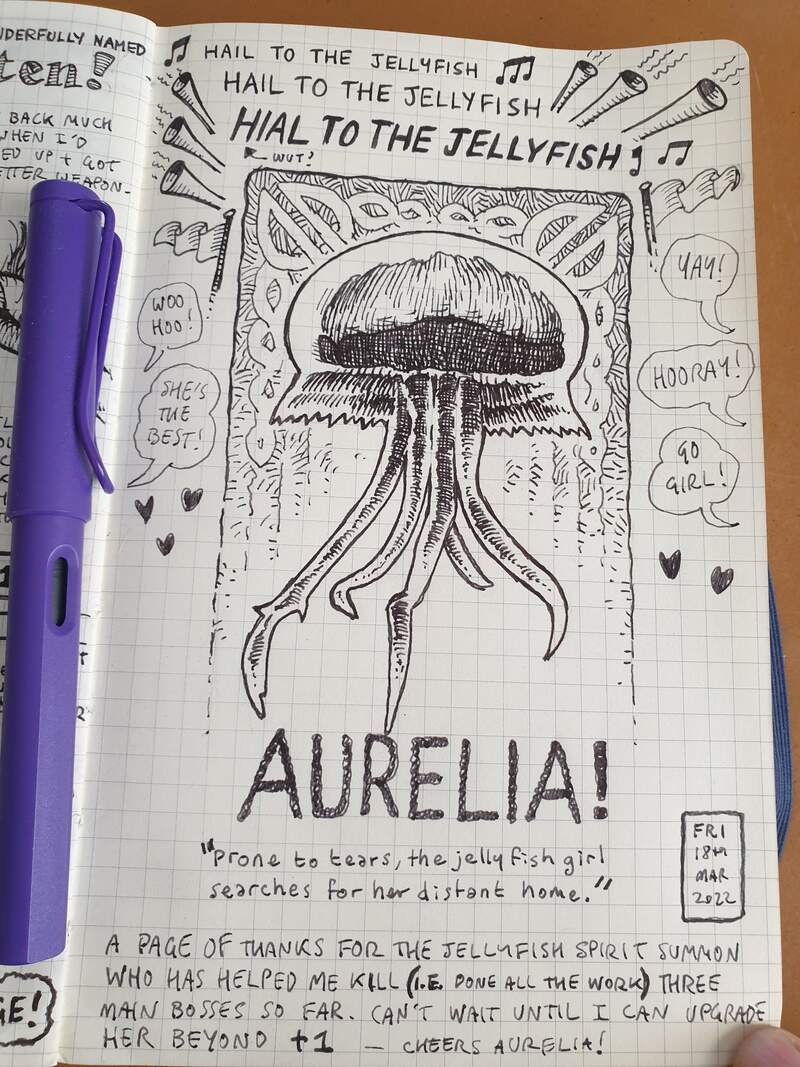 NDERFULLY NAMED
ten!
BACK MUCH
WHEN I'D
ED UP + GOT
ETTER WEAPON-
GE!
HAIL TO THE JELLYFISH
HAIL TO THE JELLYFISH
HIAL TO THE JELLYFISH
WUT?
WOO
HOO!
SHE'S
THE
BEST!
YAY!
HOORAY!
GO
GIRL!
AURELIA!
"Prone to tears, the jellyfish girl
searches for her distant home."
FRI
18TH
MAR
2022
A PAGE OF THANKS FOR THE JELLYFISH SPIRIT SUMMON
WHO HAS HELPED ME KILL (I.E. DONE ALL THE WORK) THREE
MAIN BOSSES SO FAR. CAN'T WAIT UNTIL I CAN UPGRADE
HER BEYOND +1 – CHEERS AURELIA!